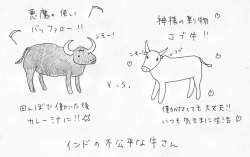 悪魔の使い
バッファロー!!
ンモー!
田んぼで働いた後
カレーまに!!
V.S.
神様の乗り物
コブ牛!!
ンモー!
コブ
働かなくても大丈夫!!
いつも気ままに生活
インドの不公平な牛さん